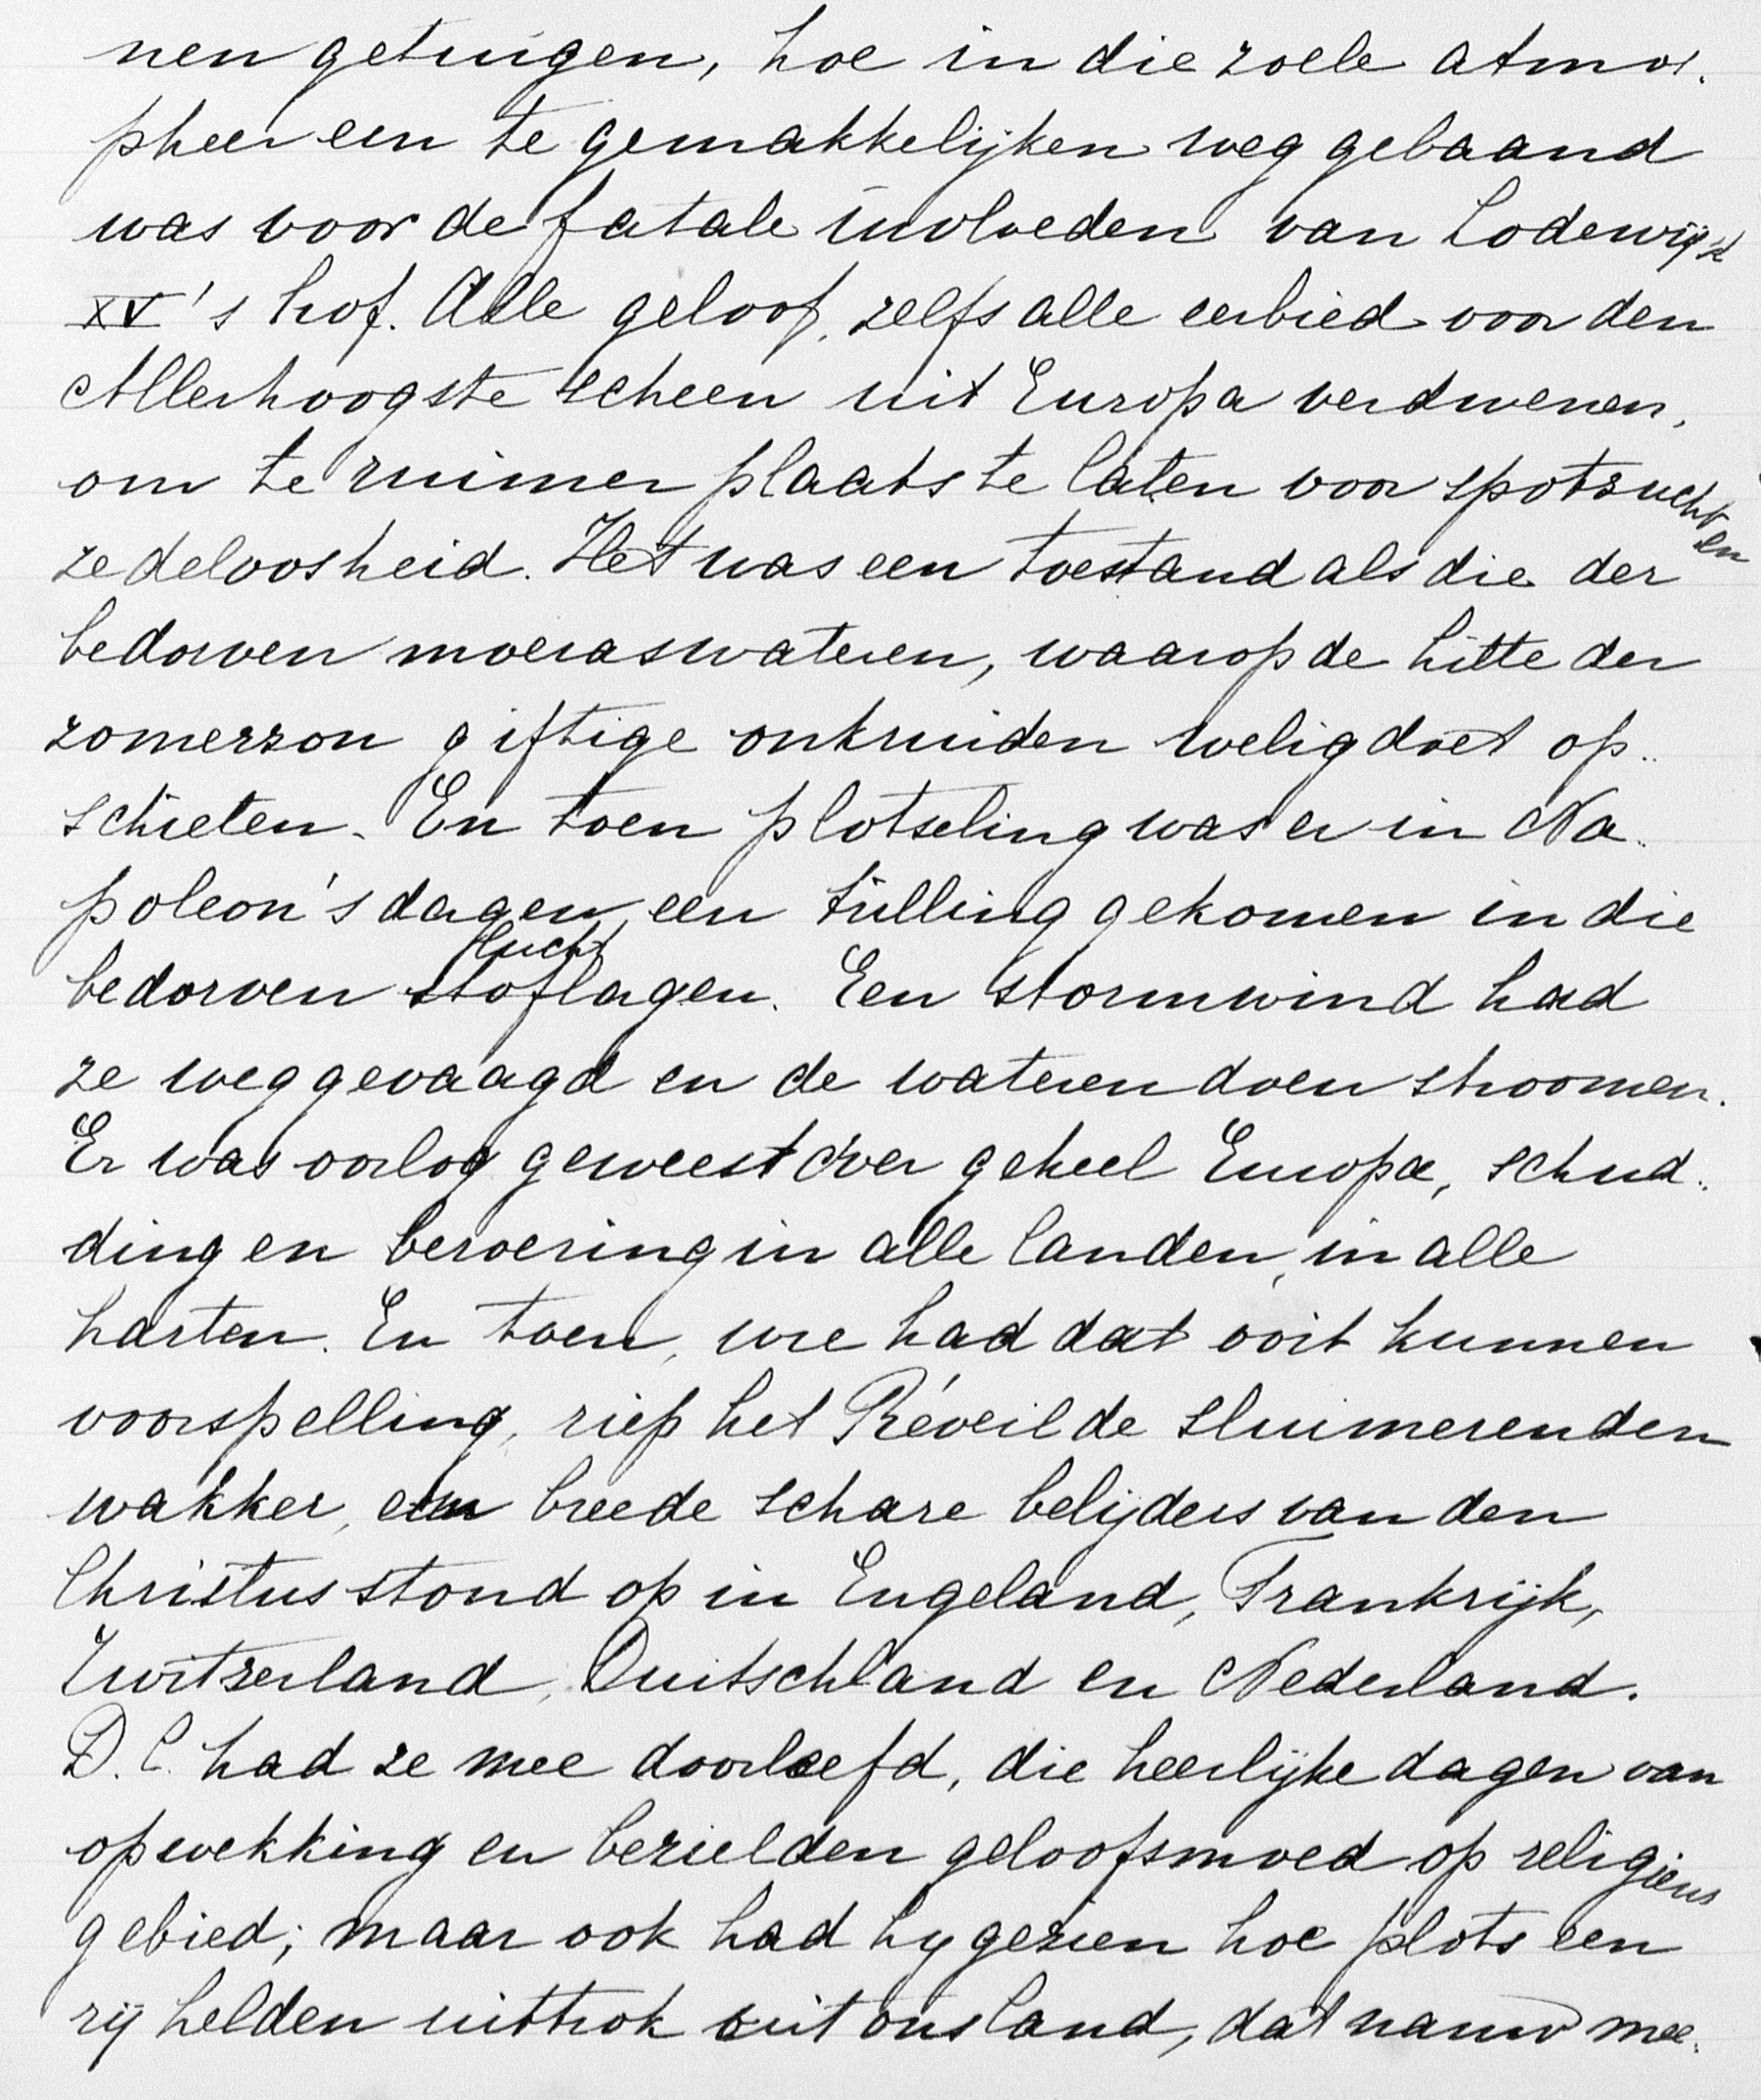 nen getuigen, hoe in die zoele atmos-
pheer een te gemakkelijken weg gebaand
was voor de fatale invloeden van Lodewijk
XV's hof. Alle geloof, zelfs alle eerbied voor den
Allerhoogste scheen uit Europa verdwenen,
om te ruimer plaats te laten voor spotzucht en
zedeloosheid. Het was een toestand als die der
bedorven moeraswateren, waarop de hitte der
zomerzon giftige onkruiden welig doet op-
schieten. En toen plotseling was er in Na-
poleon's dagen een trilling gekomen in die
lucht
bedorven stoflagen. Een stormwind had
ze weggevaagd en de wateren doen stroomen.
Er was oorlog geweest over geheel Europa, schud-
ding en beroering in alle landen, in alle
harten. En toen, wie had dat ooit kunnen
voorspelling, riep het Réveil de sluimerenden
wakker, een breede schare belijders van den
Christus stond op in Engeland, Frankrijk,
Zwitzerland, Duitschland en Nederland.
D. C. had ze mee doorleefd, die heerlijke dagen van
opwekking en bezielden geloofsmoed op religieus
gebied; maar ook had hij gezien hoe plots een
rij helden uittrok uit ons land, dat nauw mee-